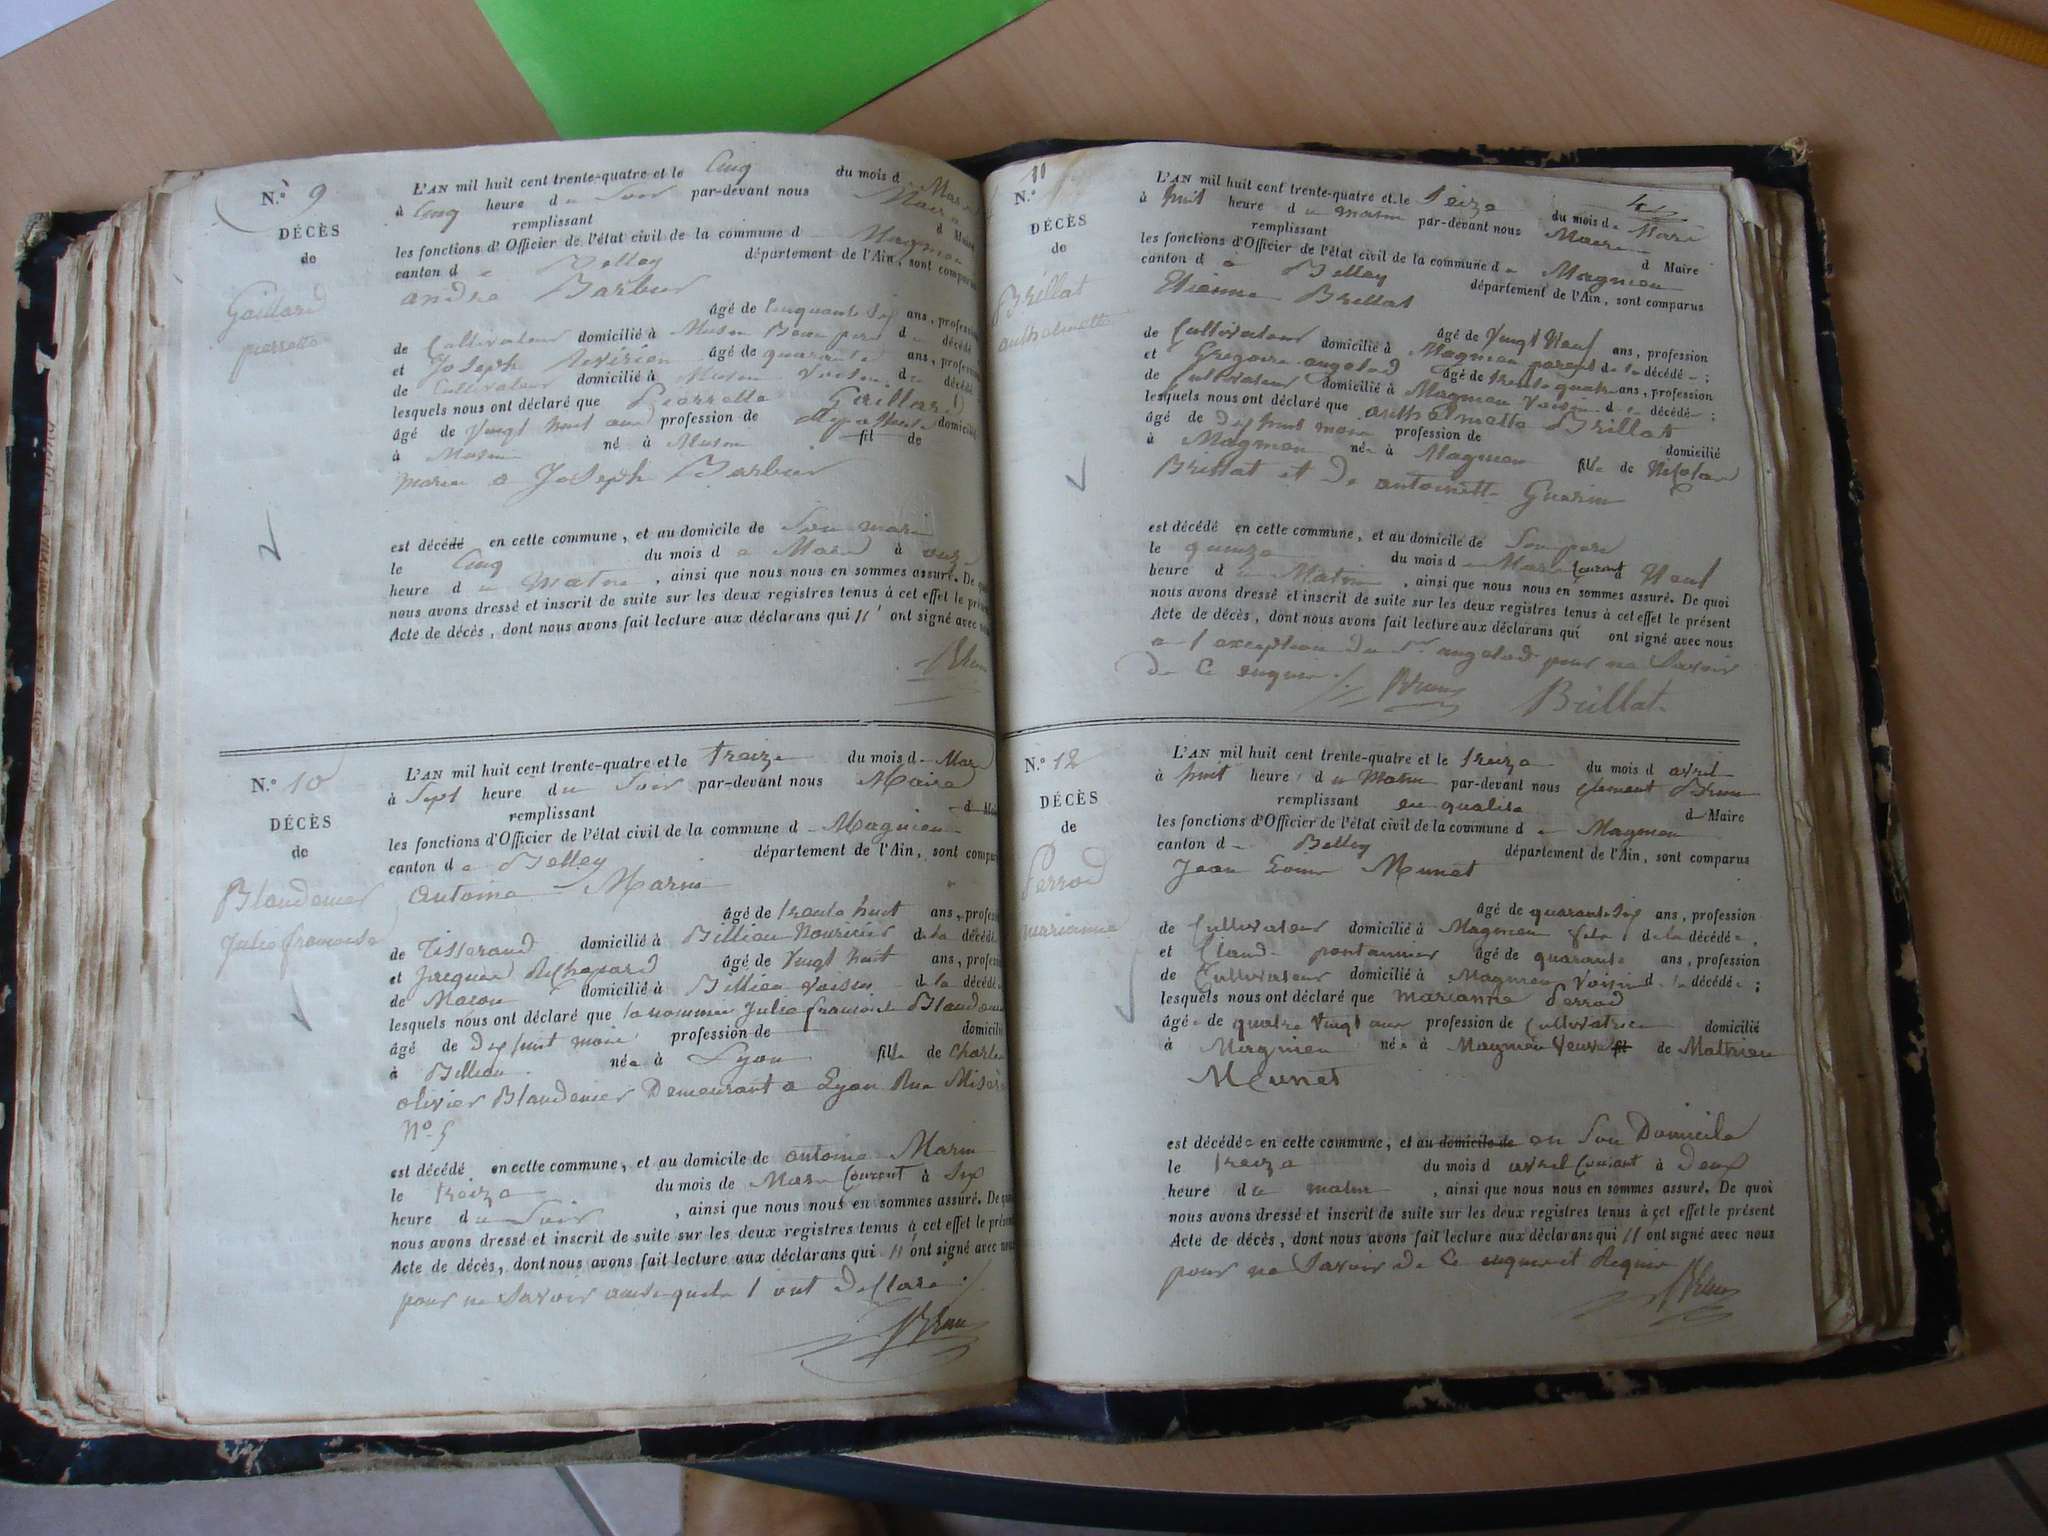 N.° 9
DÉCÈS
de
Gaillard
pierrette
L'AN mil huit cent trente-quatre et le Cinq du mois d Mars
à Cinq heure du Soir par-devant nous Maire
remplissant d Maire
les fonctions d'Officier de l'état civil de la commune d Magnieu
canton de Belley département de l'Ain, sont comparus
andré Barbier
âgé de Cinquante Six ans, profession
de Cultivateur domicilié à Musin Beau pere d décédé
et Joseph âgé de quarante ans, profession
de Cultivateur domicilié à Musin Voisin d décédé
lesquels nous ont déclaré que Pierrette
âgé de Vingt huit ans profession de domicilié
à Musin né à Musin fil de
marié a Joseph Barbier
est décédé en cette commune, et au domicile de Son mari
le Cinq du mois de Mars à onze
heure du Matin, ainsi que nous nous en sommes assuré. De quoi
nous avons dressé et inscrit de suite sur les deux registres tenus à cet effet le présent
Acte de décès, dont nous avons fait lecture aux déclarans qui n'ont signé avec nous
Brun
N.° 10
DÉCÈS
de
Blandenier
Julie françoise
L'AN mil huit cent trente-quatre et le treize du mois de Mars
à Sept heure du Soir par-devant nous Maire
remplissant d Maire
les fonctions d'Officier de l'état civil de la commune d Magnieu
canton de Belley département de l'Ain, sont comparus
antoine Marin
âgé de trente huit ans, profession
de Tisserand domicilié à Billieu Nouricier de la décédé
et Jacques Rechapard âgé de Vingt huit ans, profession
de Macon domicilié à Billieu Voisin de la décédé
lesquels nous ont déclaré que la nommée Julie francoise Blandenier
âgé de dix huit mois profession de domicilié
à Billieu née à Lyon fille de Charle
olivier Blandenier Demeurant a Lyon Rue
N° 5
est décédé en cette commune, et au domicile de antoine Marin
le treize du mois de Mars Courent à Six
heure du Soir, ainsi que nous nous en sommes assuré. De quoi
nous avons dressé et inscrit de suite sur les deux registres tenus à cet effet le présent
Acte de décès, dont nous avons fait lecture aux déclarans qui n'ont signé avec nous
pour ne Savoir ainsi quils l'ont Déclaré
Brun
11
N.°
DÉCÈS
de
Brillat
anthelmette
L'AN mil huit cent trente-quatre et le Seize du mois de Mars
à huit heure du matin par-devant nous Maire
remplissant d Maire
les fonctions d'Officier de l'état civil de la commune de Magnieu
canton de Belley département de l'Ain, sont comparus
Etienne Brillat
âgé de Vingt Neuf ans, profession
de Cultivateur domicilié à Magnieu parent de la décédé;
et Gregoire angelod âgé de trente quatre ans, profession
de Cultivateur domicilié à Magnieu Voisin de décédé;
lesquels nous ont déclaré que anthelmette Brillat
âgé de dix huit mois profession de domicilié
à Magnieu née à Magnieu fille de Nicolas
Brillat et De antoinette Guerin
est décédé en cette commune, et au domicile de Son pere
le quinze du mois de Mars Courent Neuf
heure du Matin, ainsi que nous nous en sommes assuré. De quoi
nous avons dressé et inscrit de suite sur les deux registres tenus à cet effet le présent
Acte de décès, dont nous avons fait lecture aux déclarans qui ont signé avec nous
a l'exception du Sr angelod pour ne Savoir
De Ce enquis
Brun Brillat
N.° 12
DÉCÈS
de
Perrod
marianne
L'AN mil huit cent trente-quatre et le treize du mois d avril
à huit heure du Matin par-devant nous Clement Brun
remplissant en qualité d Maire
les fonctions d'Officier de l'état civil de la commune de Magnieu
canton de Belley département de l'Ain, sont comparus
Jean Louis Munet
âgé de quarante Six ans, profession
de Cultivateur domicilié à Magnieu fils de la décédée,
et Claude pontannier âgé de quarante ans, profession
de Cultivateur domicilié à Magnieu Voisin de la décédée;
lesquels nous ont déclaré que marianne Perrod
âgée de quatre Vingt ans profession de Cultivatrice domicilié
à Magnieu née à Magnieu Veuve fil de Mathieu
Munet
est décédée en cette commune, et au domicile de en Son Domicile
le treize du mois d avril Courant à Deux
heure du matin, ainsi que nous nous en sommes assuré. De quoi
nous avons dressé et inscrit de suite sur les deux registres tenus à cet effet le présent
Acte de décès, dont nous avons fait lecture aux déclarans qui n'ont signé avec nous
pour ne Savoir De Ce enquis et Requis
Brun